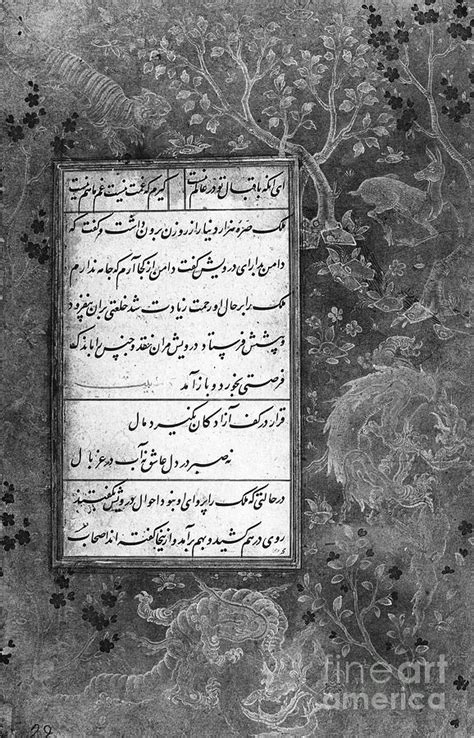 ای آنکه باقبال تو در عالم نیست گیرم که غمت نیست غم ما هم نیست
ملک صره هزار دینار از روزن برون داشت و گفت که
دامن بدار ای درویش گفت دامن از کجا آرم که جامه ندارم
ملک را بر حال او رحمت زیادت شد خلعتی بران بیفزود
و پیشش فرستاد درویش مران نقد و جنس را باندک
فرصتی بخورد و باز آمد
بیت
قرار در کف آزادگان نگیرد مال
نه صبر در دل عاشق نه آب در غربال
در حالتی که ملک را پروای او نبود احوال درویش بگفتند
روی درهم کشید و بهم برآمد و ازینجا گفته اند اصحاب
fineart
america